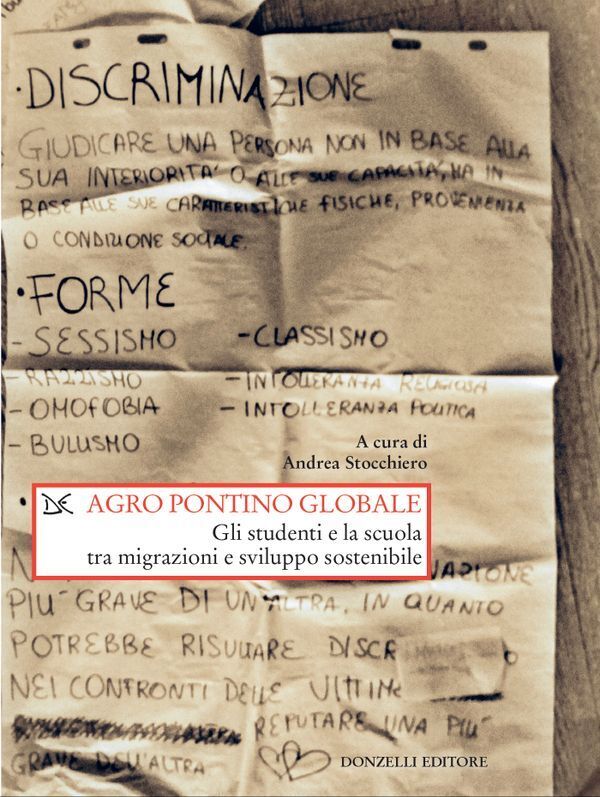 • DISCRIMINAZIONE
GIUDICARE UNA PERSONA NON IN BASE ALLA
SUA INTERIORITA' O ALLE SUE CAPACITA', MA IN
BASE ALLE SUE CARATTERISTICHE FISICHE, PROVENIENZA
O CONDIZIONE SOCIALE.
• FORME
- SESSISMO - CLASSISMO
- RAZZISMO - INTOLLERANZA RELIGIOSA
- OMOFOBIA - INTOLLERANZA POLITICA
- BULUSMO
A cura di
Andrea Stocchiero
DE AGRO PONTINO GLOBALE
Gli studenti e la scuola
tra migrazioni e sviluppo sostenibile
N
PIU' GRAVE DI UN'ALTRA, IN QUANTO
POTREBBE RISULTARE DISCR
NEI CONFRONTI DELLE ULTIME
REPUTARE UNA PIU'
GRAVE DELL'ALTRA
DONZELLI EDITORE